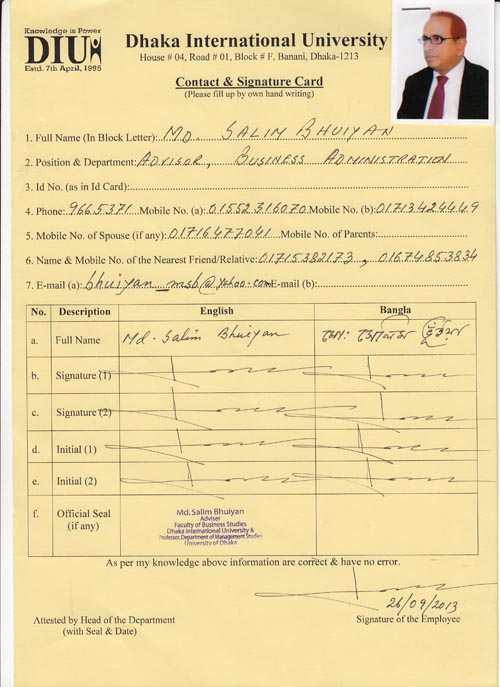 Knowledge is Power
DIU
Estd. 7th April, 1995
Dhaka International University
House # 04, Road # 01, Block # F, Banani, Dhaka-1213
Contact & Signature Card
(Please fill up by own hand writing)
1. Full Name (In Block Letter): MD. SALIM BHUIYAN
2. Position & Department: ADVISOR, BUSINESS ADMINISTRATION
3. Id No. (as in Id Card):
4. Phone: 9665371 Mobile No. (a): 01552316070 Mobile No. (b): 01713424449
5. Mobile No. of Spouse (if any): 01716477041 Mobile No. of Parents:
6. Name & Mobile No. of the Nearest Friend/Relative: 01715382173, 01674853834
7. E-mail (a): bhuiyan_msb@yahoo.com E-mail (b):
No. Description English Bangla
a. Full Name Md. Salim Bhuiyan মোঃ সেলিম ভূঁইয়া
b. Signature (1)
c. Signature (2)
d. Initial (1)
e. Initial (2)
f. Official Seal
(if any)
Md. Salim Bhuiyan
Adviser
Faculty of Business Studies
Dhaka International University &
Professor, Department of Management Studies
University of Dhaka
As per my knowledge above information are correct & have no error.
26/09/2013
Attested by Head of the Department
(with Seal & Date)
Signature of the Employee